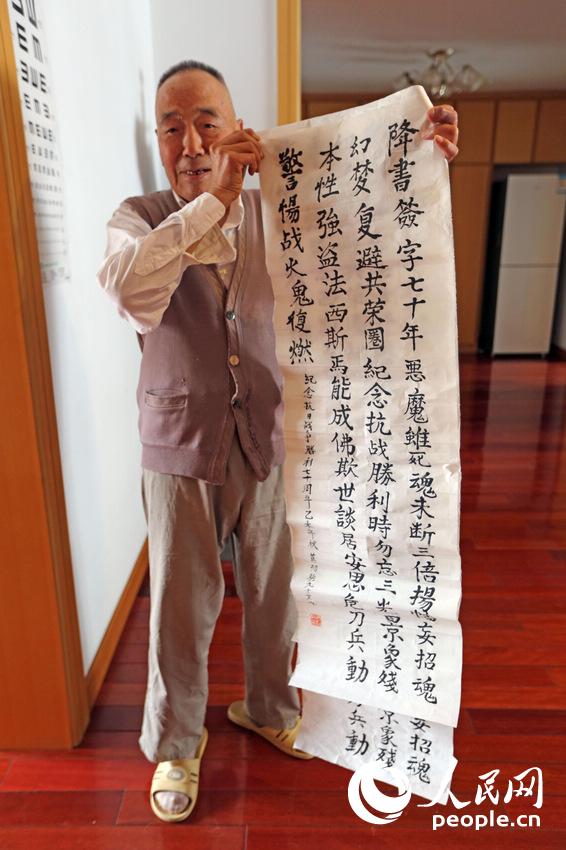 降書簽字七十年 惡魔雖死魂未断三倍揚妄招魂
幻梦复避共荣圈 紀念抗战勝利時勿忘三光景象殘
本性強盗法西斯焉能成佛欺世談居安思危刀兵動
警惕战火鬼復燃 纪念抗日战争胜利七十周年乙未年秋
妄招魂
景象殘
兵動
人民网
people.cn